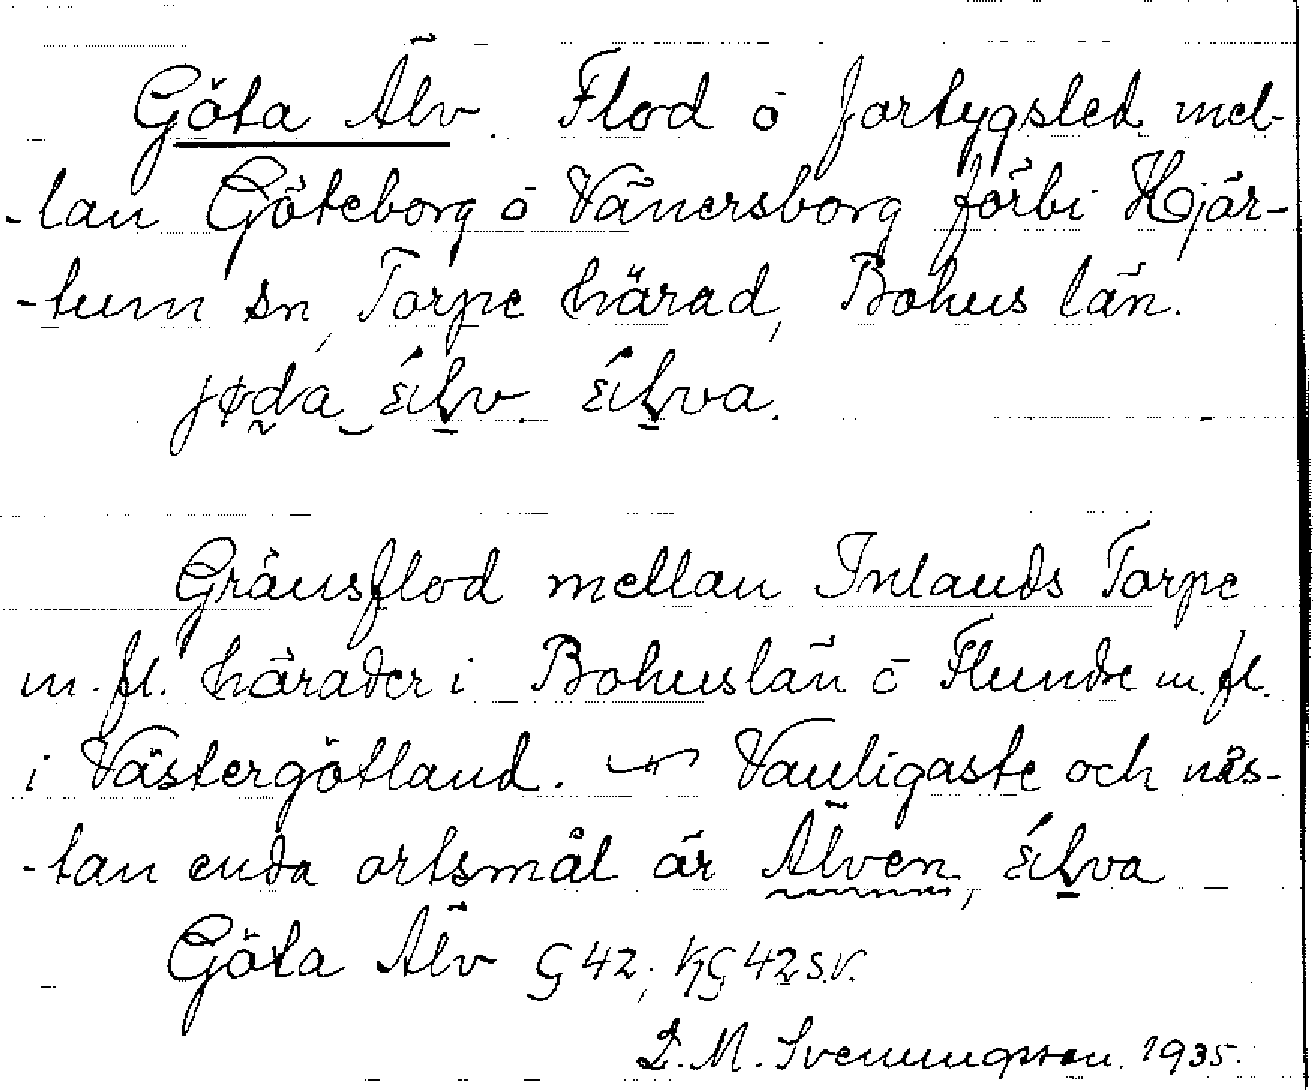 Göta Älv. Flod o fartygsled mel-
-lan Göteborg o Vänersborg förbi Hjär-
-tum sn, Torpe härad, Bohus län.
Gränsflod mellan Inlands Torpe
m. fl. härader i Bohuslän o Flundre m. fl.
i Västergötland. — Vanligaste och näs-
-tan enda ortsmål är Älven,
Göta Älv G 42; KG 42 s.v.
Svenungsson. 1935.